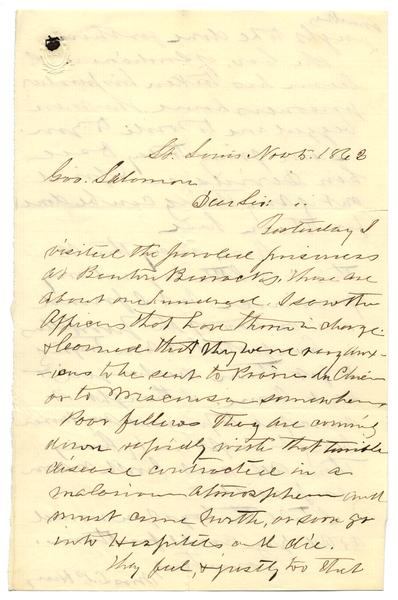 St. Louis Nov 5. 1863
Gov. Salomon
Dear Sir:
Yesterday I
visited the paroled prisoners
at Benton Barracks, there are
about one hundred. I saw the
officers that have them in charge.
& learned that they were very anx-
-ious to be sent to Prairie du Chien
or to Wisconsin somewhere
Poor fellows they are coming
down rapidly with that terrible
disease contracted in a
malarious atmosphere and
must come North, or soon go
into Hospitals and die.
They feel, & justly too that